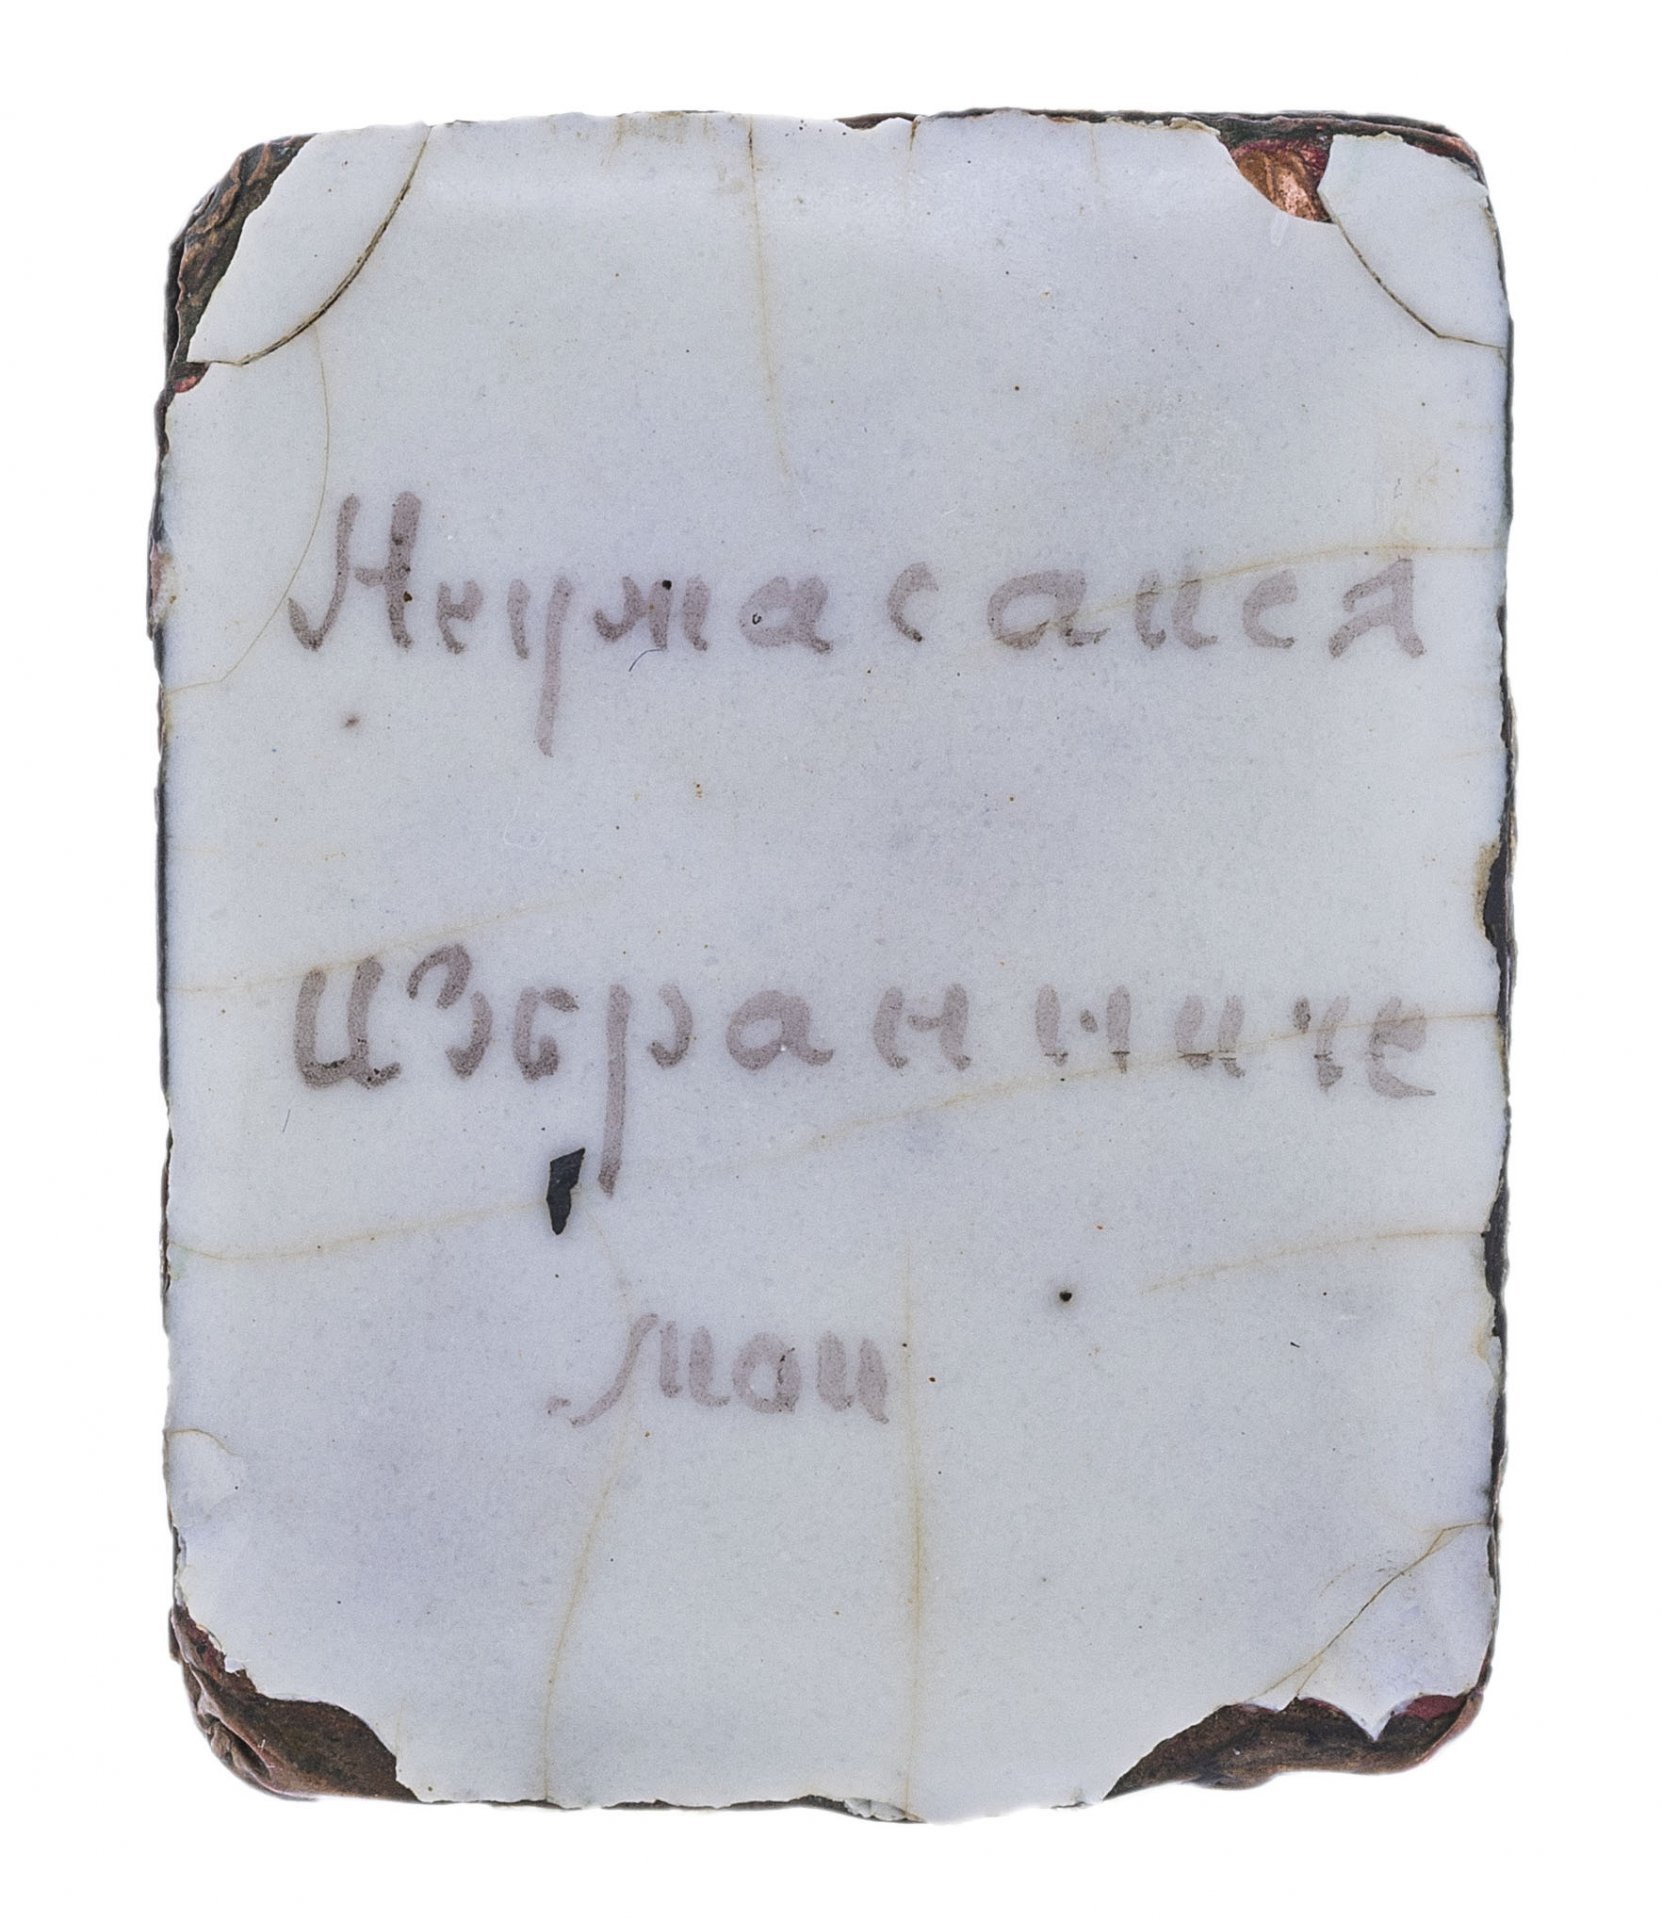 Неужасаися
избранниче
мои